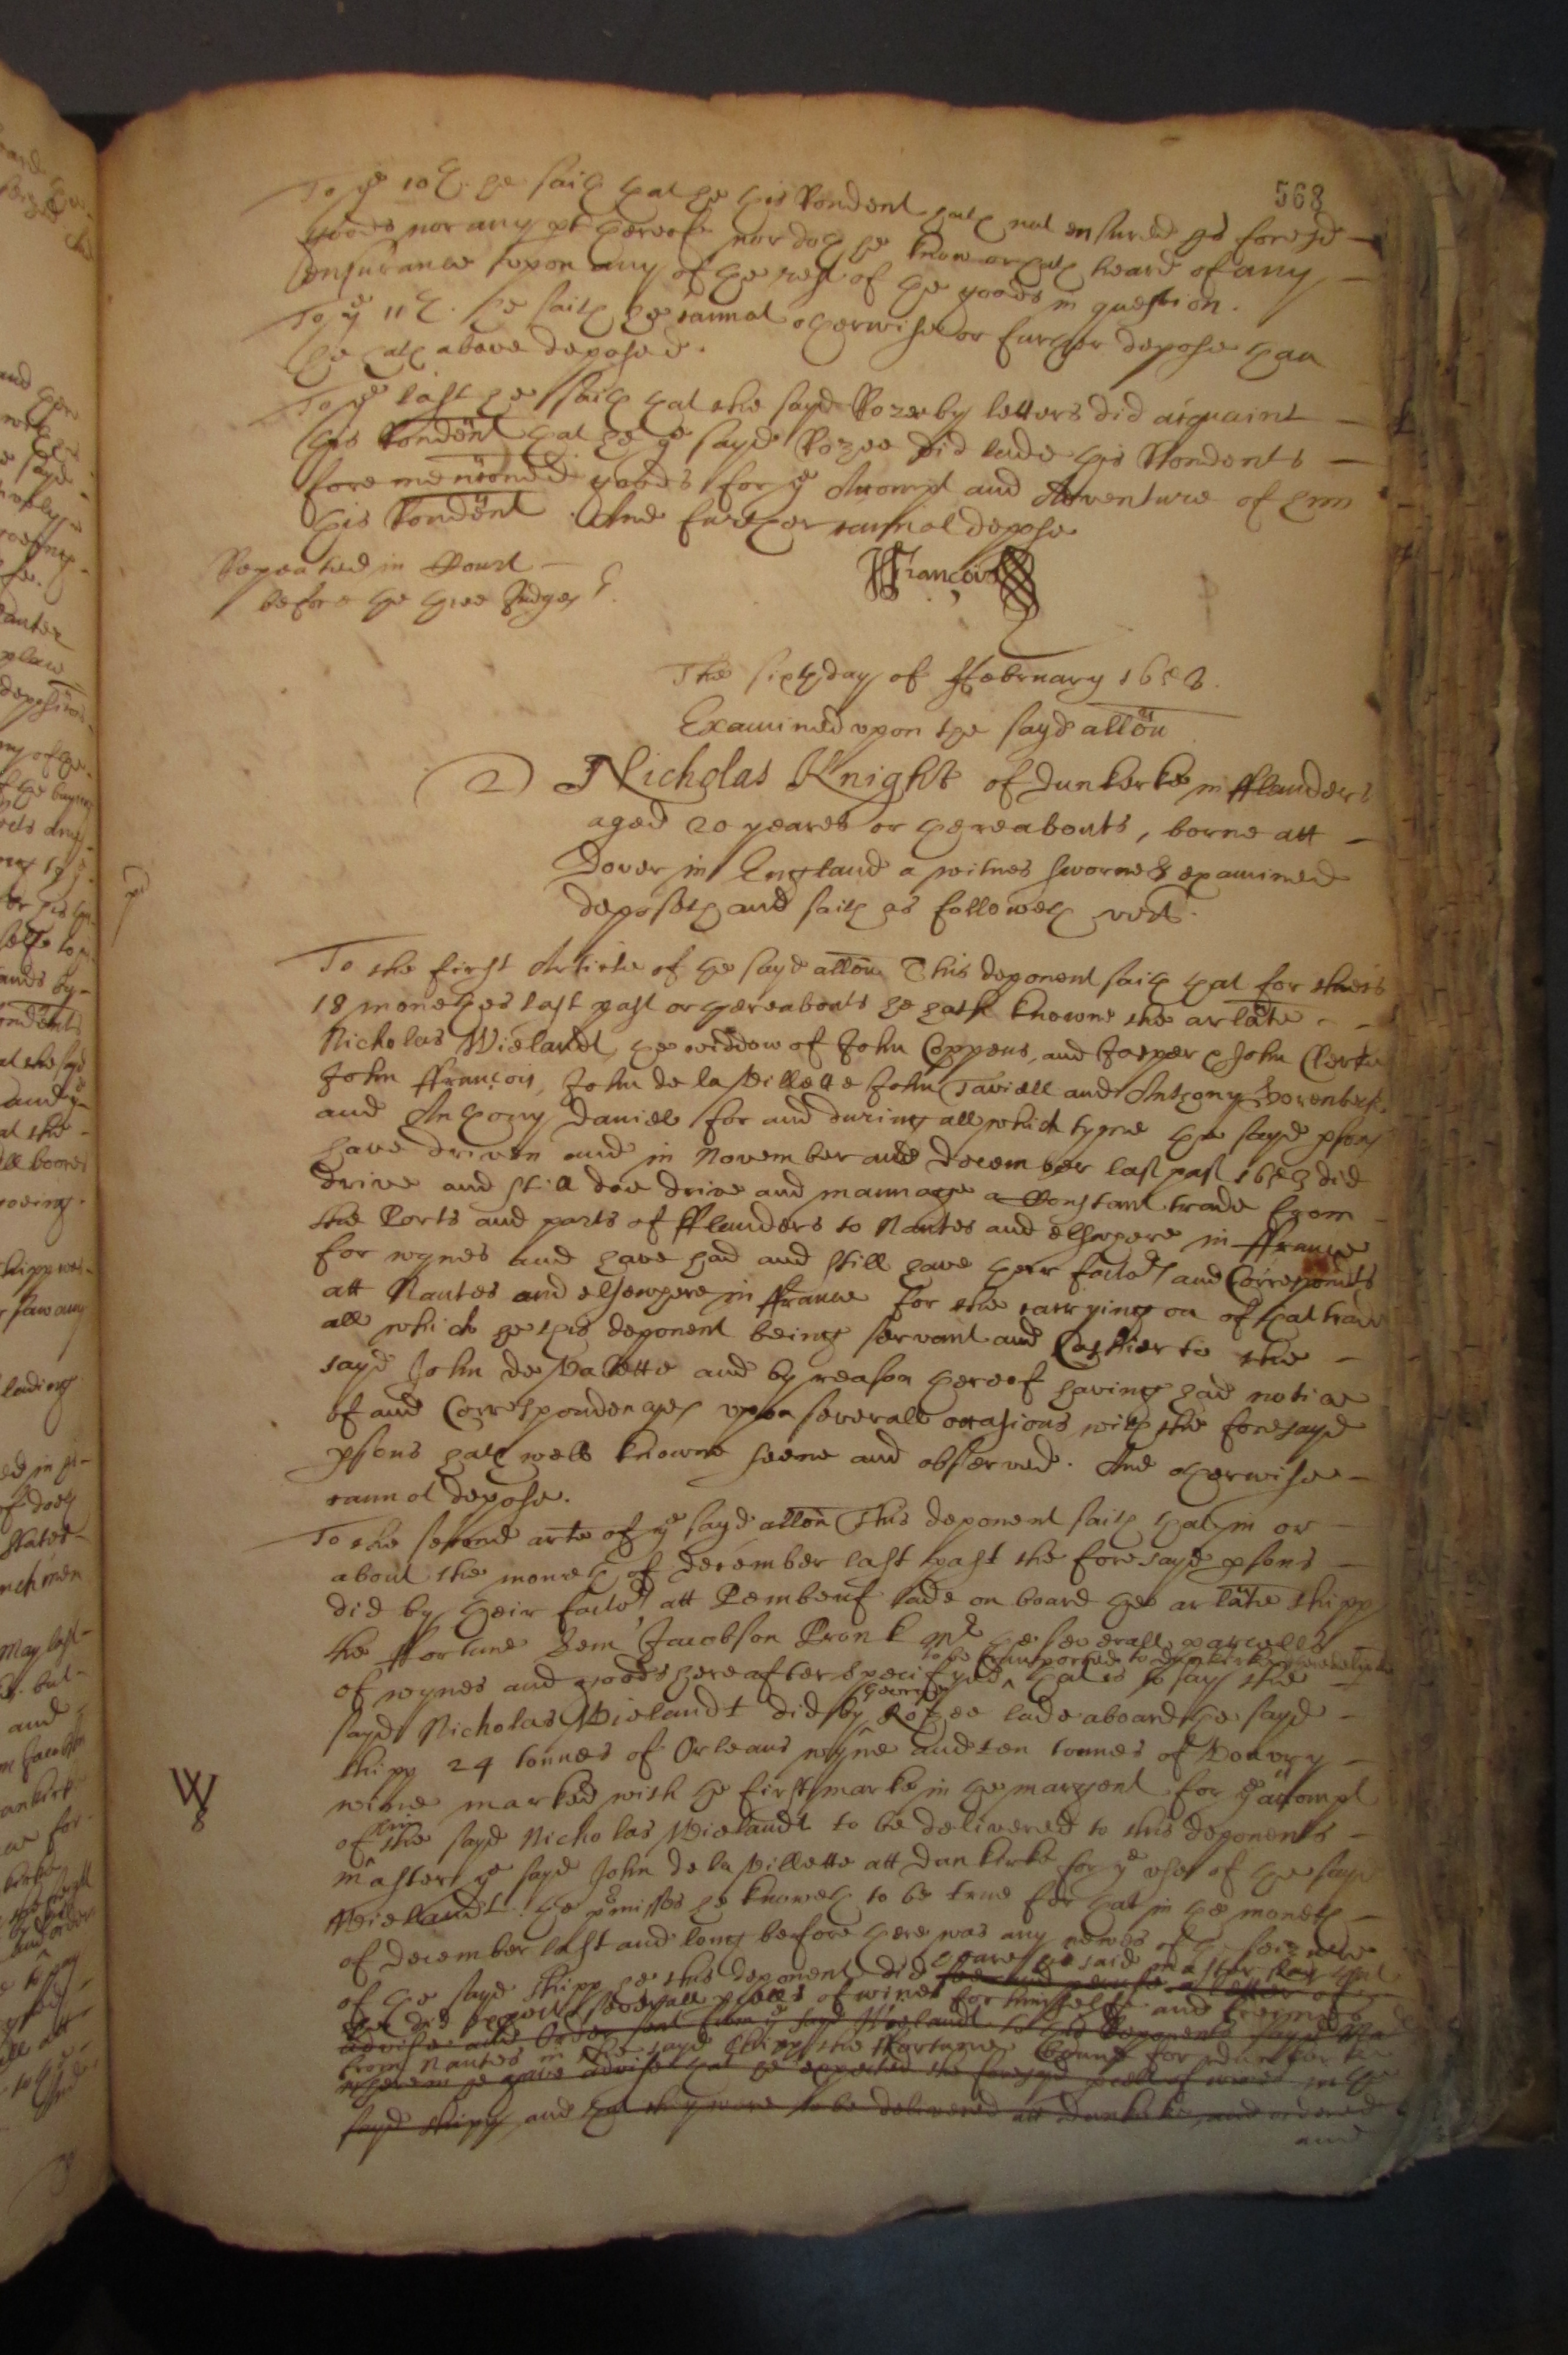 568
To ye 10th. he saith that he this Rondent hath not ensured his foresd
goods nor any pt thereof nor doth he know or hath heard of any
ensurance upon any of the rest of the goods in question.
To ye 11th. he saith he cannot otherwise or further depose than
he hath above deposed.
To ye last he saith that the sayd Rozee by letters did acquaint
this Rondent that he ye sayd Rozee did lade this Rondents
forementioned goods for ye Accompt and Adventure of him
this Rondent. And further cannot depose
Repeated in Court
before the three Judges.
JFrancois
The sixth day of ffebruary 1653.
Examined upon the sayd allon
2 Nicholas Knight of Dunkerke in fflanders
aged 20 yeares or thereabouts, borne att
Dover in England a witnes sworne & examined
deposeth and saith as followeth vizt.
To the first Article of the sayd allon This deponent saith that for theis
18 monethes last past or thereabouts he hath knowne the arlate
Nicholas Wielandt, the widdow of John Coppens, and Jasper & John Clerke
John ffrancois, John de la Villette John Taviell and Anthony
and Anthony Daniel for and during all which tyme the sayd psons
have driven and in November and December last past 1653 did
drive and still doe drive and mannage a constant trade from
the Ports and parts of fflanders to Nantes and elsewhere in ffrance
for wynes and have had and still have their factors and Correspondts
att Nantes and elsewhere in ffrance for the carrying on of that trade
all which he this deponent being servant and Cashier to the
sayd John de Valette and by reason thereof having had notice
of and Correspondencyes upon severall occasions with the foresayd
psons hath well knowne seene and observed. And otherwise
cannot depose.
To the second arte of ye sayd allon This deponent saith that in or
about the moneth of December last past the foresayd psons
did by their factors att Pembeuf lade on board the arlate shipp
the ffortune Jacobson Pronk Mr the severall parcells
to be transported to Dunkirke
of wynes and goods hereafter specifyed, that is to say the
George
sayd Nicholas Wielandt did by Rozee lade aboard the sayd
shipp 24 tonnes of Orleans wyne and ten tonnes of
wine marked with the first marke in the margent for ye accompt
W
8
him
of the sayd Nicholas Wielandt to be delivered to this deponents
master ye sayd John de la Villette att Dunkerke for ye use of the sayd
Wielandt. The pmisses he knoweth to be true for that in the moneth
of December last and long before there was any newes of the seizure
heare his said master say that
of the sayd shipp he this deponent did see and peruse a letter of
did expect severall pcells of wines for himselfe and freinds
advise and Order sent from ye sayd Wielandt to this deponents sayd Mar
from Nantes in the sayd shipp the ffortune bound for Dunkerke
wherein he gave advise that he expected the foresayd pcell of wines in the
sayd shipp and that they were to be delivered att Dunkerke, and ordered
and